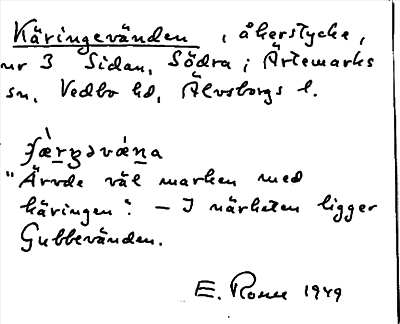 Käringevänden, åkerstycke,
nr 3 Sidan, Södra i Ärtemarks
sn, Vedbo hd, Älvsborgs l.
"Ärvde väl marken med
käringen". – I närheten ligger
Gubbevänden.
E. Rosén 1949